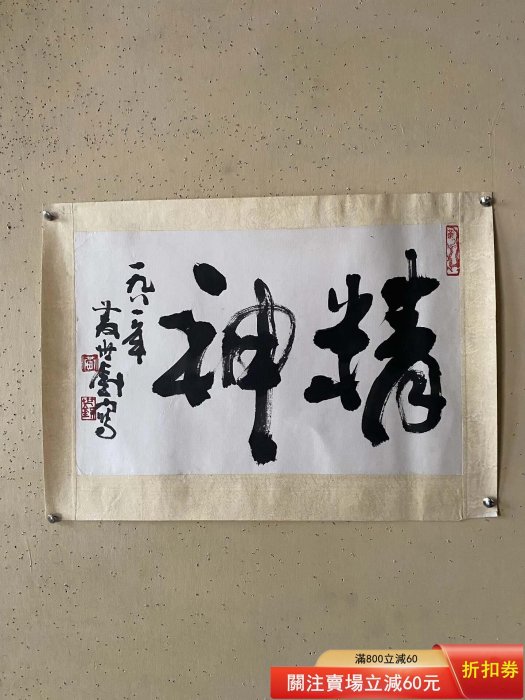 精神
一九八二年
滿800立減60
關注賣場立減60元
折扣券